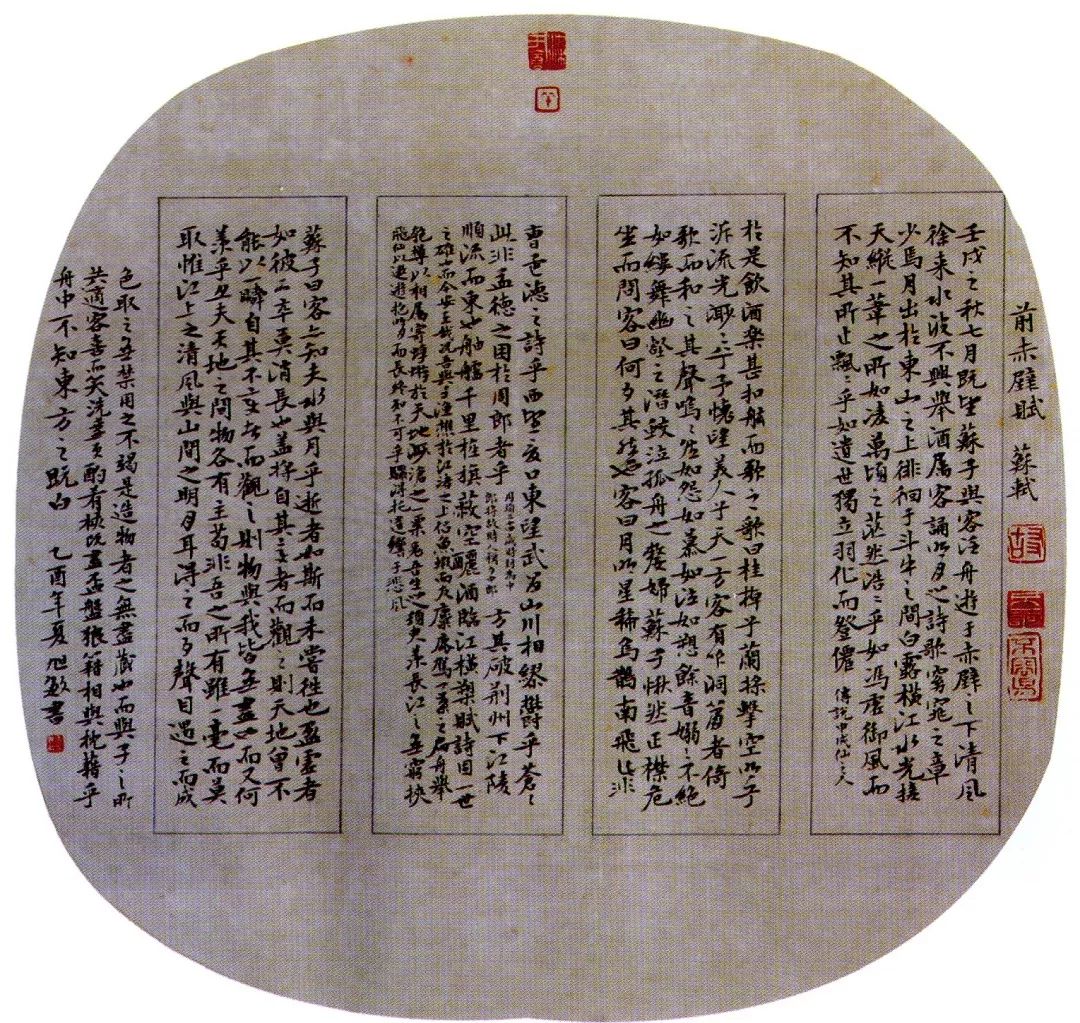 前赤壁賦 蘇軾
壬戌之秋七月既望蘇子與客泛舟遊于赤壁之下清風
徐來水波不興舉酒屬客誦明月之詩歌窈窕之章
少焉月出於東山之上徘徊于斗牛之間白露橫江水光接
天縱一葦之所如凌萬頃之茫然浩〻乎如馮虛御風而
不知其所止飄〻乎如遺世獨立羽化而登僊 傳說中成仙之人
於是飲酒樂甚扣舷而歌之歌曰桂棹兮蘭槳擊空明兮
泝流光渺〻兮予懷望美人兮天一方客有吹洞簫者倚
歌而和之其聲嗚〻然如怨如慕如泣如愬餘音嫋〻不絕
如縷舞幽壑之潛蛟泣孤舟之嫠婦蘇子愀然正襟危
坐而問客曰何為其然也客曰月明星稀烏鵲南飛此非
曹孟德之詩乎西望夏口東望武昌山川相繆鬱乎蒼〻
此非孟德之困於周郎者乎 方其破荊州下江陵
順流而東也舳艫千里旌旗蔽空釃酒臨江橫槊賦詩固一世
之雄而今安在哉況吾與子漁樵於江渚之上侶魚蝦而友麋鹿駕一葉之扁舟舉
匏尊以相屬寄蜉蝣於天地渺滄海之一粟哀吾生之須臾羨長江之無窮挾
飛仙以遨遊抱明月而長終知不可乎驟得托遺響于悲風
蘇子曰客亦知夫水與月乎逝者如斯而未嘗往也盈虛者
如彼而卒莫消長也蓋將自其變者而觀之則天地曾不
能以一瞬自其不變者而觀之則物與我皆無盡也而又何
羨乎且夫天地之間物各有主苟非吾之所有雖一毫而莫
取惟江上之清風與山間之明月耳得之而為聲目遇之而成
色取之無禁用之不竭是造物者之無盡藏也而與子之所
共適客喜而笑洗盞更酌肴核既盡盃盤狼籍相與枕藉乎
舟中不知東方之既白 乙酉年夏旭敏書